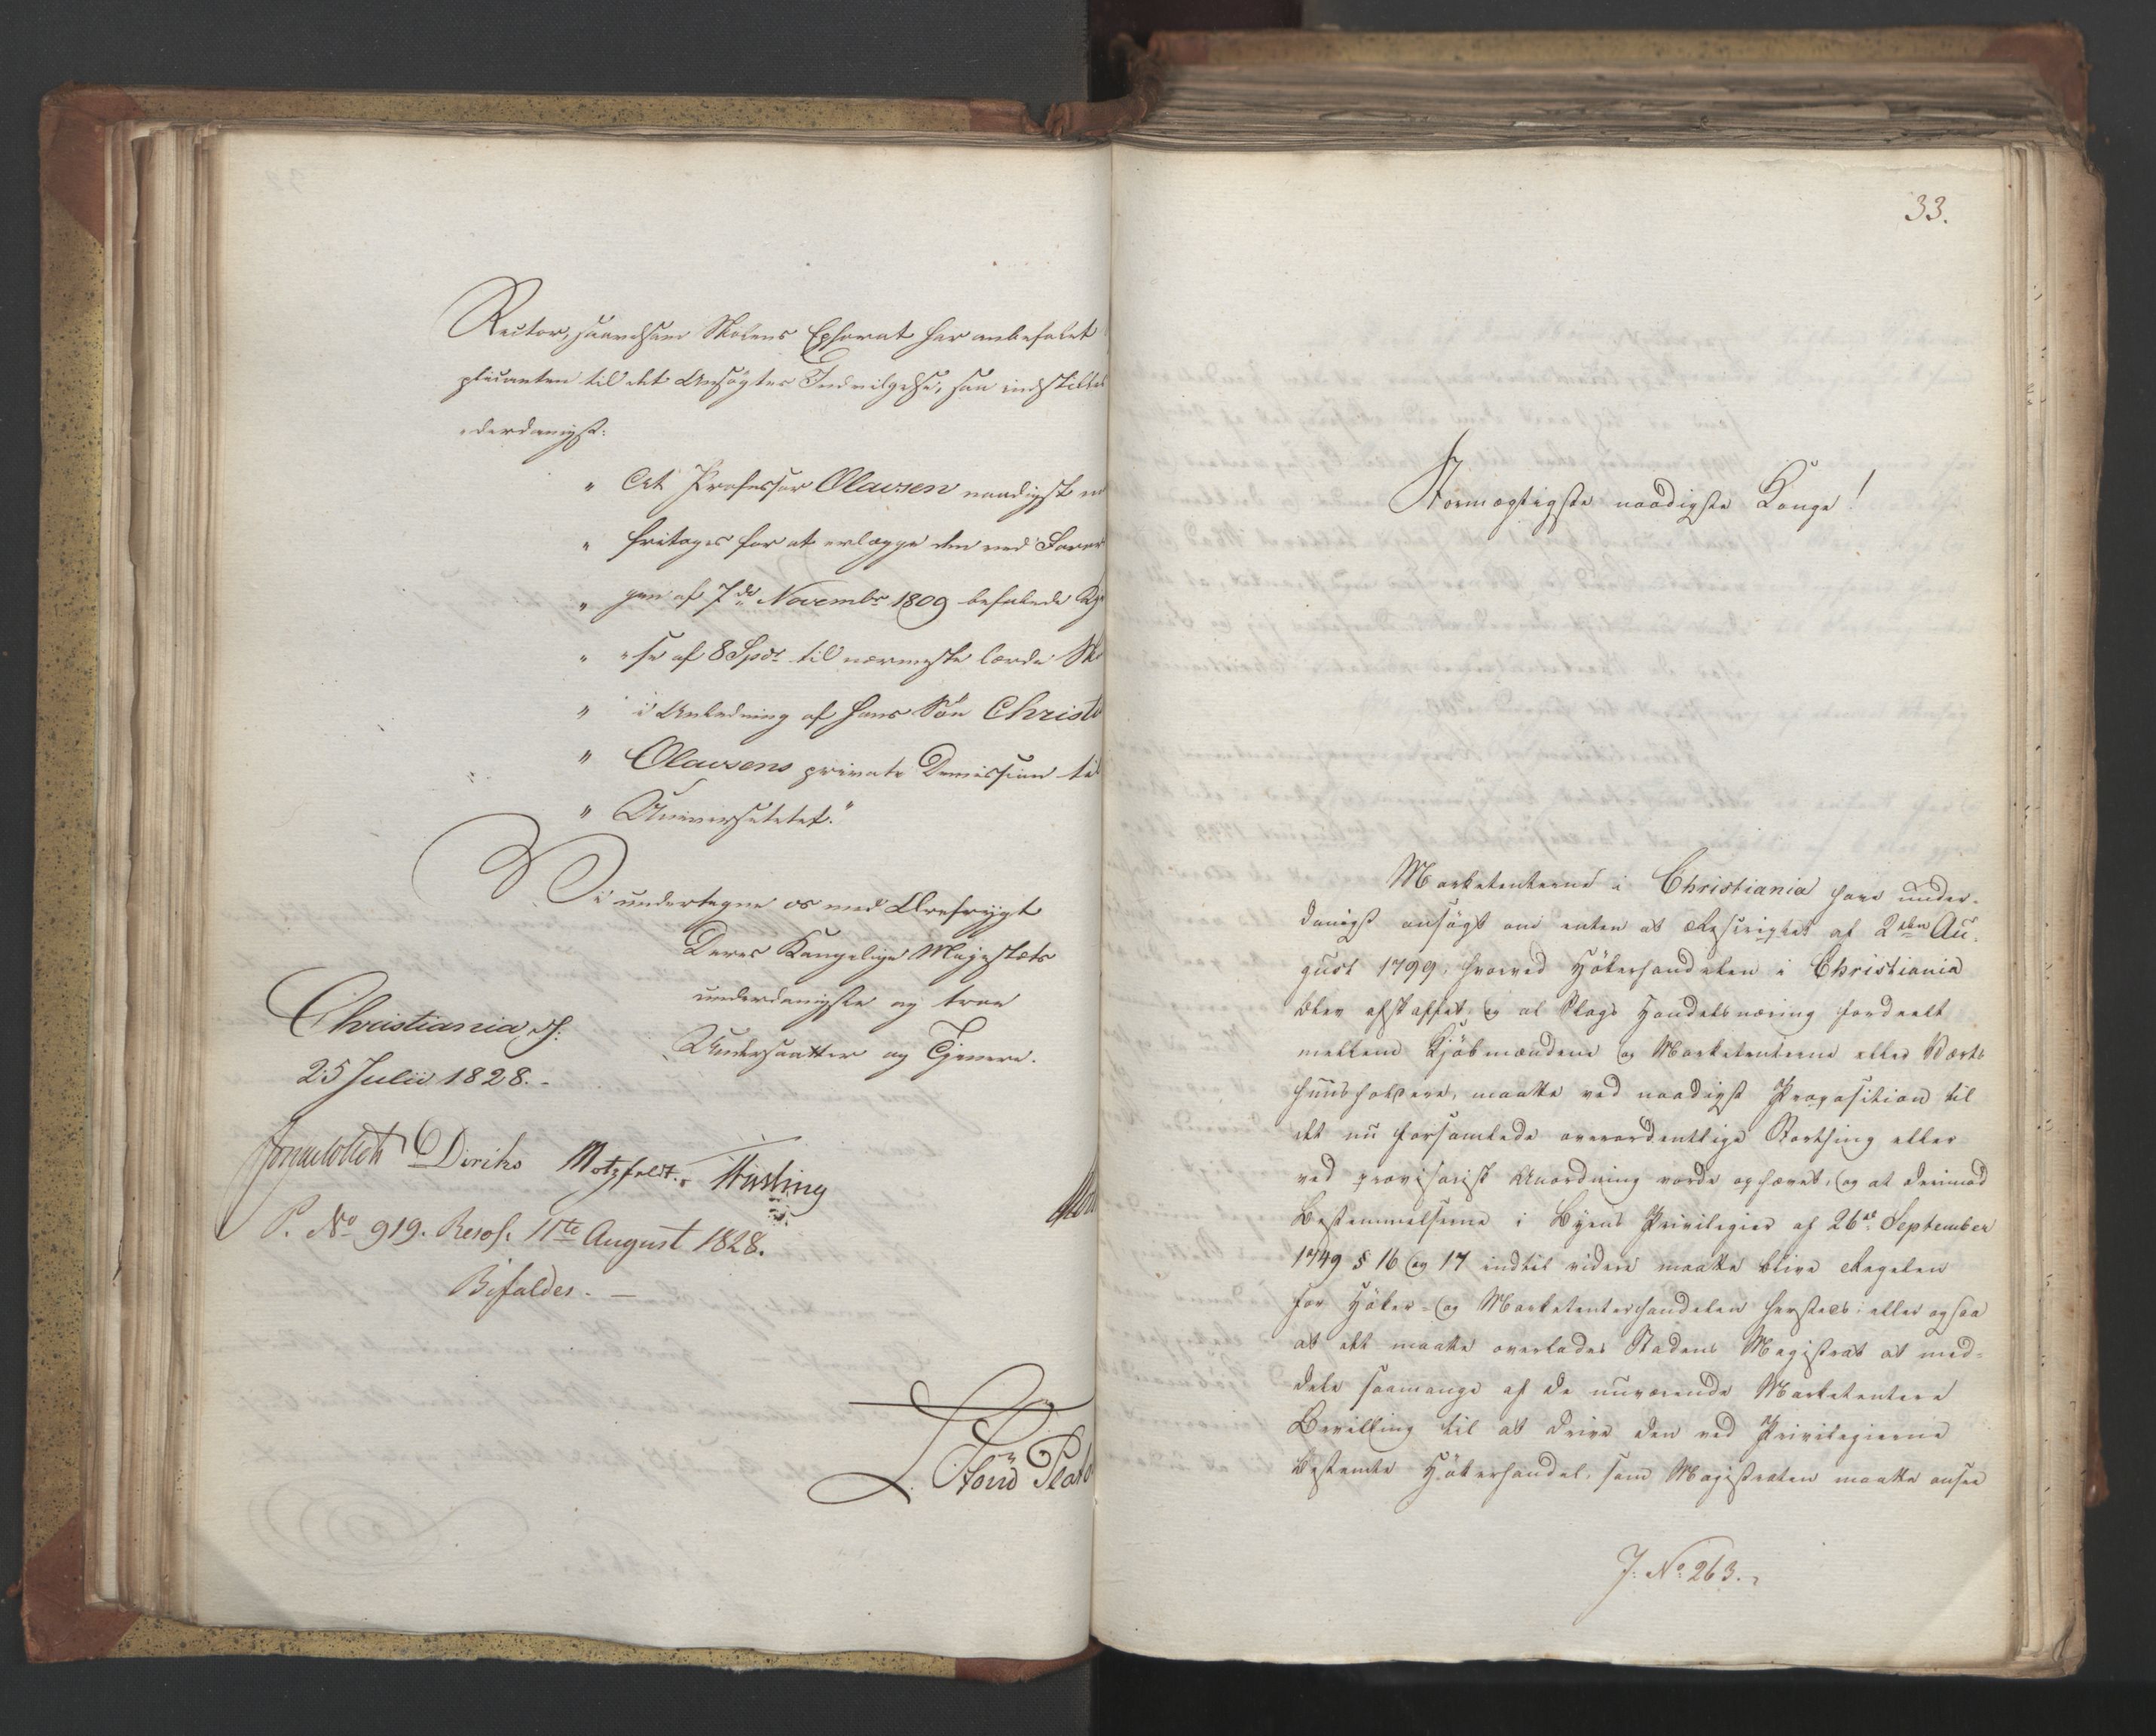 Rector, saavelsom Skolens Ephorat har anbefalet
plicanten til det Ansøgtes Indvilgelse, saa indstilles
derdanigst:
" At Professor Olavsen naadigst
" fritages for at erlægge den ved Foror
" gen af 7de Novembr 1809 befalede
" se af 8 Spdr til nærmeste lærde Sko
" i Anledning af hans Søn Christi
" Olavsens private Demission til
" Universitetet."
Vi undertegne os med Ærefrygt
Deres Kongelige Majestæts
underdanigste og troe
Undersaatter og Tjenere.
Christiania d:
25 Julii 1828.-
Jonas Collett Diriks Motzfeldt. Hüsling
P. No 919. Resol. 11te August 1828.
Bifaldes. -
33.
Stormægtigste naadigste Konge!
Marketenterne i Christiania have under-
danigst ansøgt om enten at Rescriptet af 2den Au-
gust 1799, hvorved Høkerhandelen i Christiania
blev afskaffet, og al Slags Handelsnæring fordeelt
mellem Kjøbmændene og Marketenterne eller Værts-
huusholdere, maatte ved naadigst Proposition til
det nu forsamlede overordentlige Storthing eller
ved provisorisk Anordning vorde ophævet, og at derimod
Bestemmelserne i Byens Privilegier af 26de September
1749 § 16 og 17 indtil videre maatte blive Regelen
for Høker- og Marketenterhandelen hersteds; eller ogsaa
at det maatte overlades Stadens Magistrat at med-
dele saamange af de nuværende Marketentere
Bevilling til at drive den ved Privilegierne
bestemte Høkerhandel, som Magistraten maatte ansee
J. No. 263.